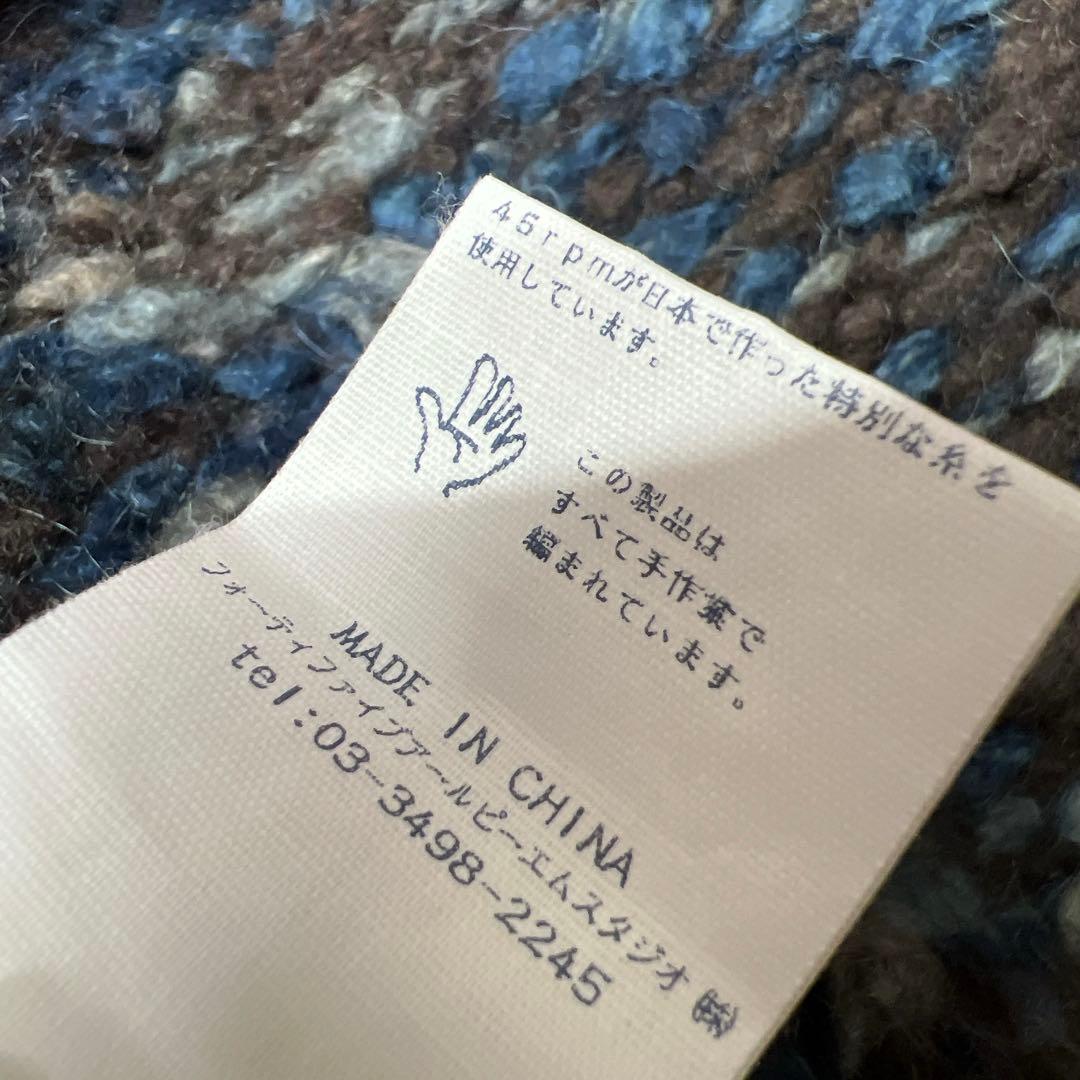 45rpmが日本で作った特別な糸を
使用しています。
この製品は
すべて手作業で
編まれています。
MADE IN CHINA
フォーティファイブアールピーエムスタジオ㈱
tel:03-3498-2245